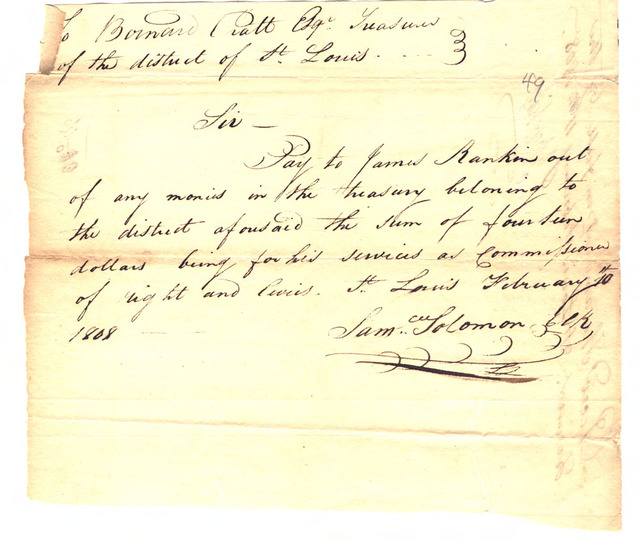 To Bernard Pratt Esqr. Treasurer
of the district of St. Louis
49
Sir —
Pay to James Rankin out
of any monies in the treasury beloning to
the district aforesaid the sum of fourteen
dollars being for his services as Commissioner
of right and levies. St. Louis February 10th
1808
Saml. Solomon Clk